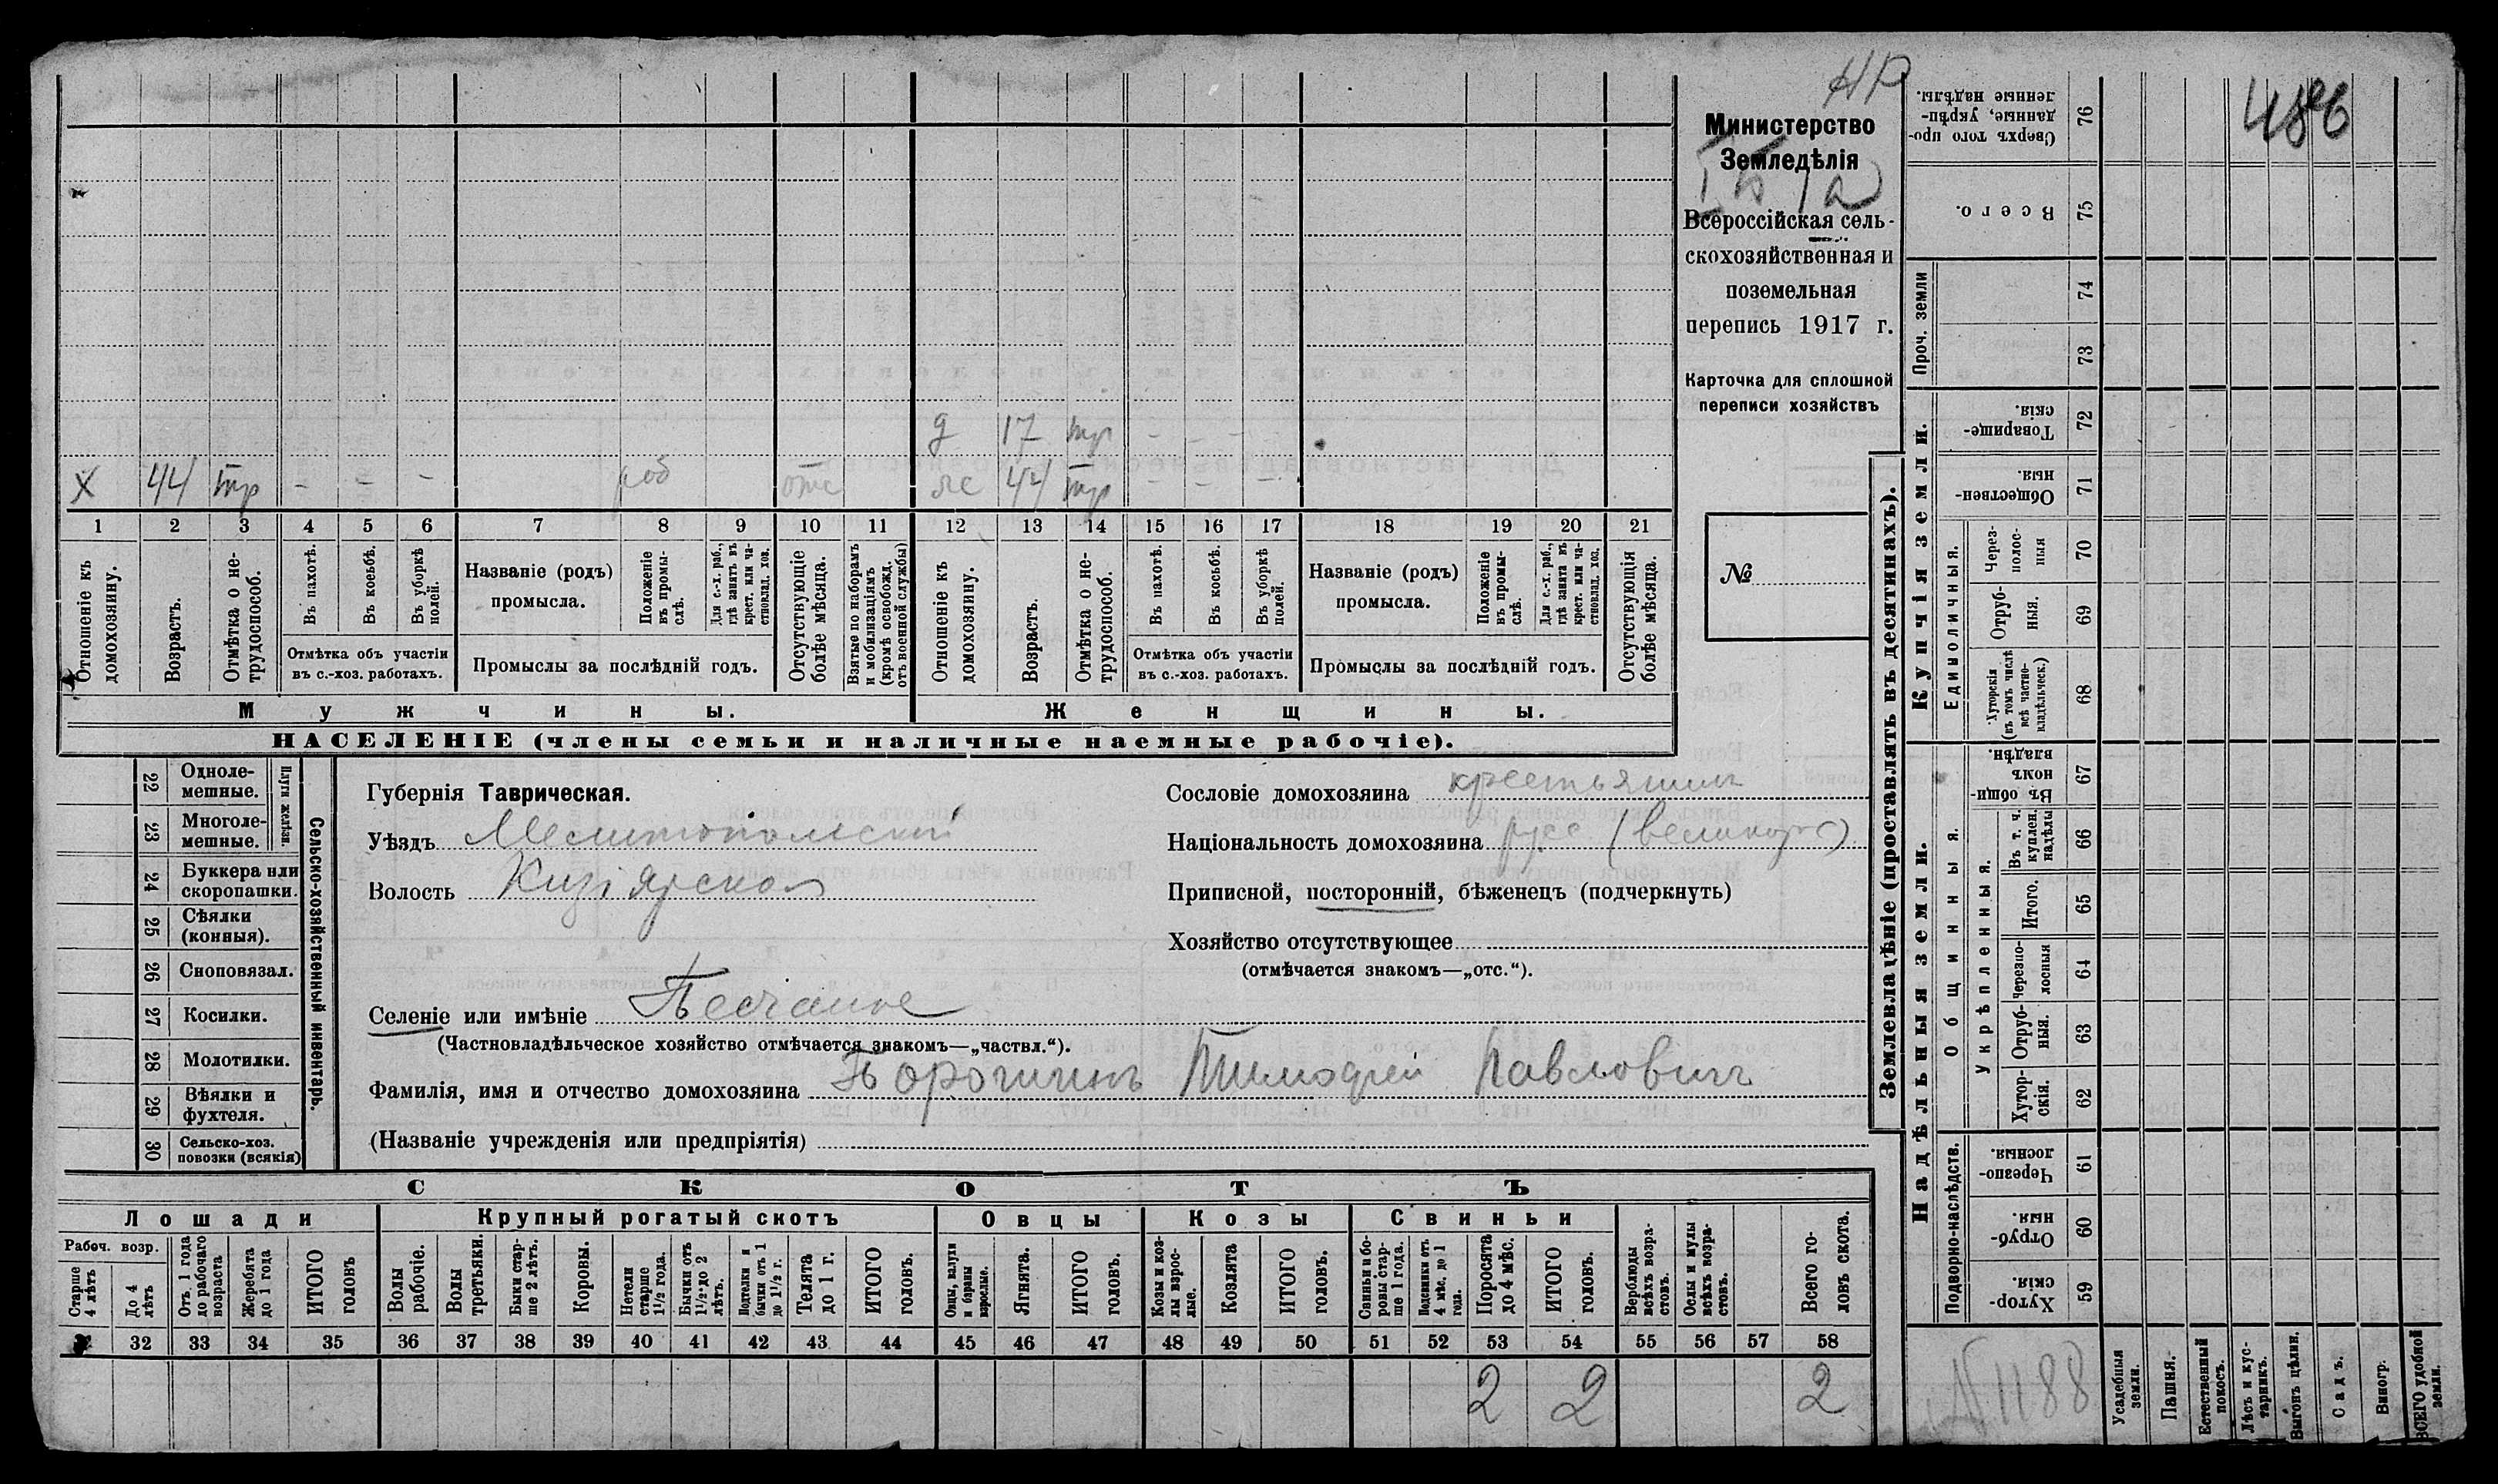 НР
486
Министерство
Земледѣлія
Всероссійская сель-
скохозяйственная и
поземельная
перепись 1917 г.
Карточка для сплошной
переписи хозяйствъ
№
д 17 тр - - -
х 44 тр - - - раб отс ж 44 тр - - -
1 2 3 4 5 6 7 8 9 10 11 12 13 14 15 16 17 18 19 20 21
Отношеніе къ домохозяину.
Возрастъ.
Отмѣтка о не-трудоспособ.
Въ пахотѣ.
Въ косьбѣ.
Въ уборкѣ полей.
Отмѣтка объ участіи
въ с.-хоз. работахъ.
Названіе (родъ)
промысла.
Положеніе въ промы-слѣ.
Для с.-х. раб., гдѣ занятъ въ крест. или ча-стновлад. хоз.
Промыслы за послѣдній годъ.
Отсутствующіе болѣе мѣсяца.
Взятые по наборамъ и мобилизаціямъ (кромѣ освобожд. отъ военной службы)
Отношеніе къ домохозяину.
Возрастъ.
Отмѣтка о не-трудоспособ.
Въ пахотѣ.
Въ косьбѣ.
Въ уборкѣ полей.
Отмѣтка объ участіи
въ с.-хоз. работахъ.
Названіе (родъ)
промысла.
Положеніе въ промы-слѣ.
Для с.-х. раб., гдѣ занята въ крест. или ча-стновлад. хоз.
Промыслы за послѣдній годъ.
Отсутствующія болѣе мѣсяца.
Мужчины.
Женщины.
НАСЕЛЕНІЕ (члены семьи и наличные наемные рабочіе).
22 Одноле-мешные.
23 Многоле-мешные.
Плуги желѣзн.
24 Буккера или скоропашки.
25 Сѣялки (конныя).
26 Сноповязал.
27 Косилки.
28 Молотилки.
29 Вѣялки и фухтеля.
30 Сельско-хоз. повозки (всякія)
Сельско-хозяйственный инвентарь.
Губернія Таврическая.
Уѣздъ Мелитопольскій
Волость Кизіярская
Сословіе домохозяина крестьянинъ
Національность домохозяина русс (великорос)
Приписной, посторонній, бѣженецъ (подчеркнуть)
Хозяйство отсутствующее
(отмѣчается знакомъ—„отс.“).
Селеніе или имѣніе Песчаное
(Частновладѣльческое хозяйство отмѣчается знакомъ—„частвл.“).
Фамилія, имя и отчество домохозяина Порошинъ Тимофей Павловичъ
(Названіе учрежденія или предпріятія)
СКОТЪ
Лошади
Крупный рогатый скотъ
Овцы
Козы
Свиньи
Рабоч. возр.
Старше 4 лѣтъ
До 4 лѣтъ
Отъ 1 года до рабочаго возраста
Жеребята до 1 года
ИТОГО головъ
Волы рабочіе.
Волы третьяки.
Быки стар-ше 2 лѣтъ.
Коровы.
Нетели старше 1½ года.
Бычки отъ 1½ до 2 лѣтъ.
Подтелки и бычки отъ 1 до 1½ г.
Телята до 1 г.
ИТОГО головъ.
Овцы, валухи и бараны взрослые.
Ягнята.
ИТОГО головъ.
Козы и коз-лы взрос-лые.
Козлята
ИТОГО головъ.
Свиньи и бо-ровы стар-ше 1 года.
Подсвинки отъ 4 мѣс. до 1 года.
Поросята до 4 мѣс.
ИТОГО головъ.
Верблюды всѣхъ возра-стовъ.
Ослы и мулы всѣхъ возра-стовъ.
Всего го-ловъ скота.
32 33 34 35 36 37 38 39 40 41 42 43 44 45 46 47 48 49 50 51 52 53 54 55 56 57 58
2 2 2
Землевладѣніе (проставлять въ десятинахъ).
Надѣльныя земли.
Купчія земли.
Проч. земли
Подворно-наслѣдств.
Общинныя.
Укрѣпленныя.
Единоличныя.
76 Сверхъ того про-данные, укрѣп-ленные надѣлы.
75 Всего.
74
73
72 Товарище-скія.
71 Обществен-ныя
70 Через-полос-ныя
69 Отруб-ныя.
68 Хуторскія (въ томъ числѣ всѣ частно-владѣльческ.)
67 Въ общи-номъ владѣн.
66 Въ т. ч. куплен. надѣлы
65 Итого.
64 Черезпо-лосныя
63 Отруб-ныя.
62 Хутор-скія.
61 Черезпо-лосныя.
60 Отруб-ныя.
59 Хутор-скія.
N 1188
Усадебныя земли.
Пашня.
Естественный покосъ.
Лѣсъ и кус-тарникъ.
Выгонъ цѣлин.
Садъ.
Виногр.
ВСЕГО удобной земли.